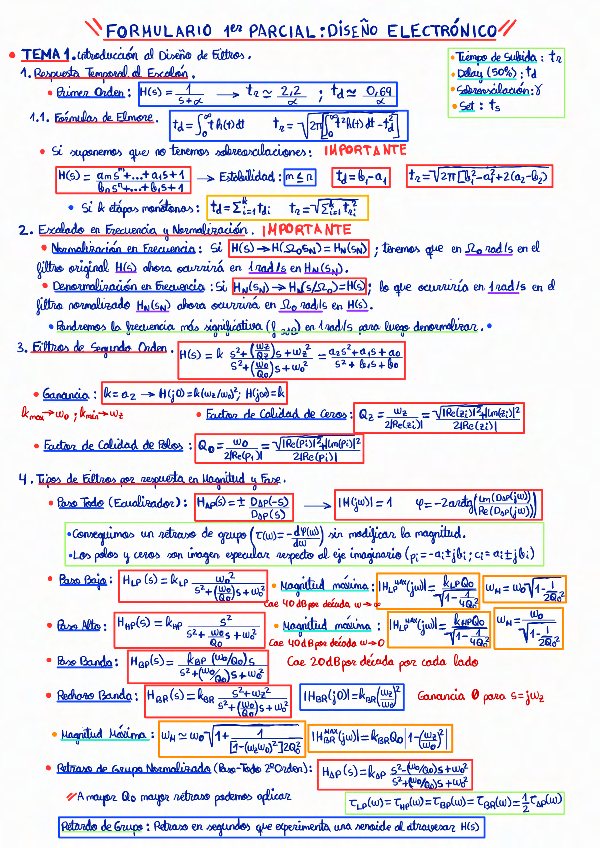 FORMULARIO 1er PARCIAL: DISEÑO ELECTRÓNICO
• TEMA 1. Introducción al Diseño de Filtros.
• Tiempo de Subida : tr
• Delay (50%) : td
• Sobreoscilación : γ
• Set : ts
1. Respuesta Temporal al Escalón.
• Primer Orden : H(s) = 1/(s+α) → tr ≃ 2,2/α ; td ≃ 0,69/α
1.1. Fórmulas de Elmore. td = ∫₀^∞ t h(t) dt tr = √(2π[∫₀^∞ t² h(t) dt - td²])
• Si suponemos que no tenemos sobreoscilaciones: IMPORTANTE
H(s) = (am s^m + ... + a1 s + 1)/(bn s^n + ... + b1 s + 1) → Estabilidad : m ≤ n td = b1 - a1 tr = √(2π[b1² - a1² + 2(a2 - b2)])
• Si k etapas monótonas : td = Σ_{i=1}^k tdi tr = √(Σ_{i=1}^k tri²)
2. Escalado en Frecuencia y Normalización. IMPORTANTE
• Normalización en Frecuencia : Si H(s) → H(Ω₀ sN) = HN(sN) ; tenemos que en Ω₀ rad/s en el
filtro original H(s) ahora ocurrirá en 1 rad/s en HN(sN).
• Denormalización en Frecuencia : Si HN(sN) → HN(s/Ω₀) = H(s) ; lo que ocurriría en 1 rad/s en el
filtro normalizado HN(sN) ahora ocurrirá en Ω₀ rad/s en H(s).
• Pondremos la frecuencia más significativa en 1 rad/s para luego denormalizar. •
3. Filtros de Segundo Orden. H(s) = k (s² + (wz/Qz)s + wz²)/(s² + (w0/Q0)s + w0²) = (a2 s² + a1 s + a0)/(s² + b1 s + b0)
• Ganancia : k = a2 → H(j0) = k(wz/w0)²; H(j∞) = k
kmax → w0 ; kmin → wz
• Factor de Calidad de Ceros : Qz = wz/(2|Re(zi)|) = √(|Re(zi)|² + |Im(zi)|²)/(2|Re(zi)|)
• Factor de Calidad de Polos : Q0 = w0/(2|Re(pi)|) = √(|Re(pi)|² + |Im(pi)|²)/(2|Re(pi)|)
4. Tipos de Filtros por respuesta en Magnitud y Fase.
• Paso Todo (Ecualizador) : HAP(s) = ± DAP(-s)/DAP(s) → |H(jw)| = 1 φ = -2 arctg(Im(DAP(jw))/Re(DAP(jw)))
• Conseguimos un retraso de grupo (τ(w) = -dφ(w)/dw) sin modificar la magnitud.
• Los polos y ceros son imagen especular respecto al eje imaginario (pi = -ai ± jbi ; ci = ai ± jbi)
• Paso Bajo : HLP(s) = kLP w0²/(s² + (w0/Q0)s + w0²) • Magnitud máxima : |HLP^MAX(jw)| = kLP Q0/√(1 - 1/4Q0²) wM = w0 √(1 - 1/2Q0²)
Cae 40 dB por década w → ∞
• Paso Alto : HHP(s) = kHP s²/(s² + w0/Q0 s + w0²) • Magnitud máxima : |HLP^MAX(jw)| = kHP Q0/√(1 - 1/4Q0²) wM = w0/√(1 - 1/2Q0²)
Cae 40 dB por década w → 0
• Paso Banda : HBP(s) = kBP (w0/Q0)s/(s² + (w0/Q0)s + w0²) Cae 20dB por década por cada lado
• Rechazo Banda : HBR(s) = kBR (s² + wz²)/(s² + (w0/Q0)s + w0²) |HBR(j0)| = kBR(wz/w0)² Ganancia 0 para s = jwz
• Magnitud Máxima : wM ≃ w0 √(1 + 1/([1-(wz/w0)²]2Q0²)) |HBR^MAX(jw)| = kBR Q0 |1 - (wz/w0)²|
• Retraso de Grupo Normalizado (Paso-Todo 2º Orden) : HAP(s) = kAP (s² - (w0/Q0)s + w0²)/(s² + (w0/Q0)s + w0²)
// A mayor Q0 mayor retraso podemos aplicar τLP(w) = τHP(w) = τBP(w) = τBR(w) = 1/2 τAP(w)
Retardo de Grupo : Retraso en segundos que experimenta una senoide al atravesar H(s)